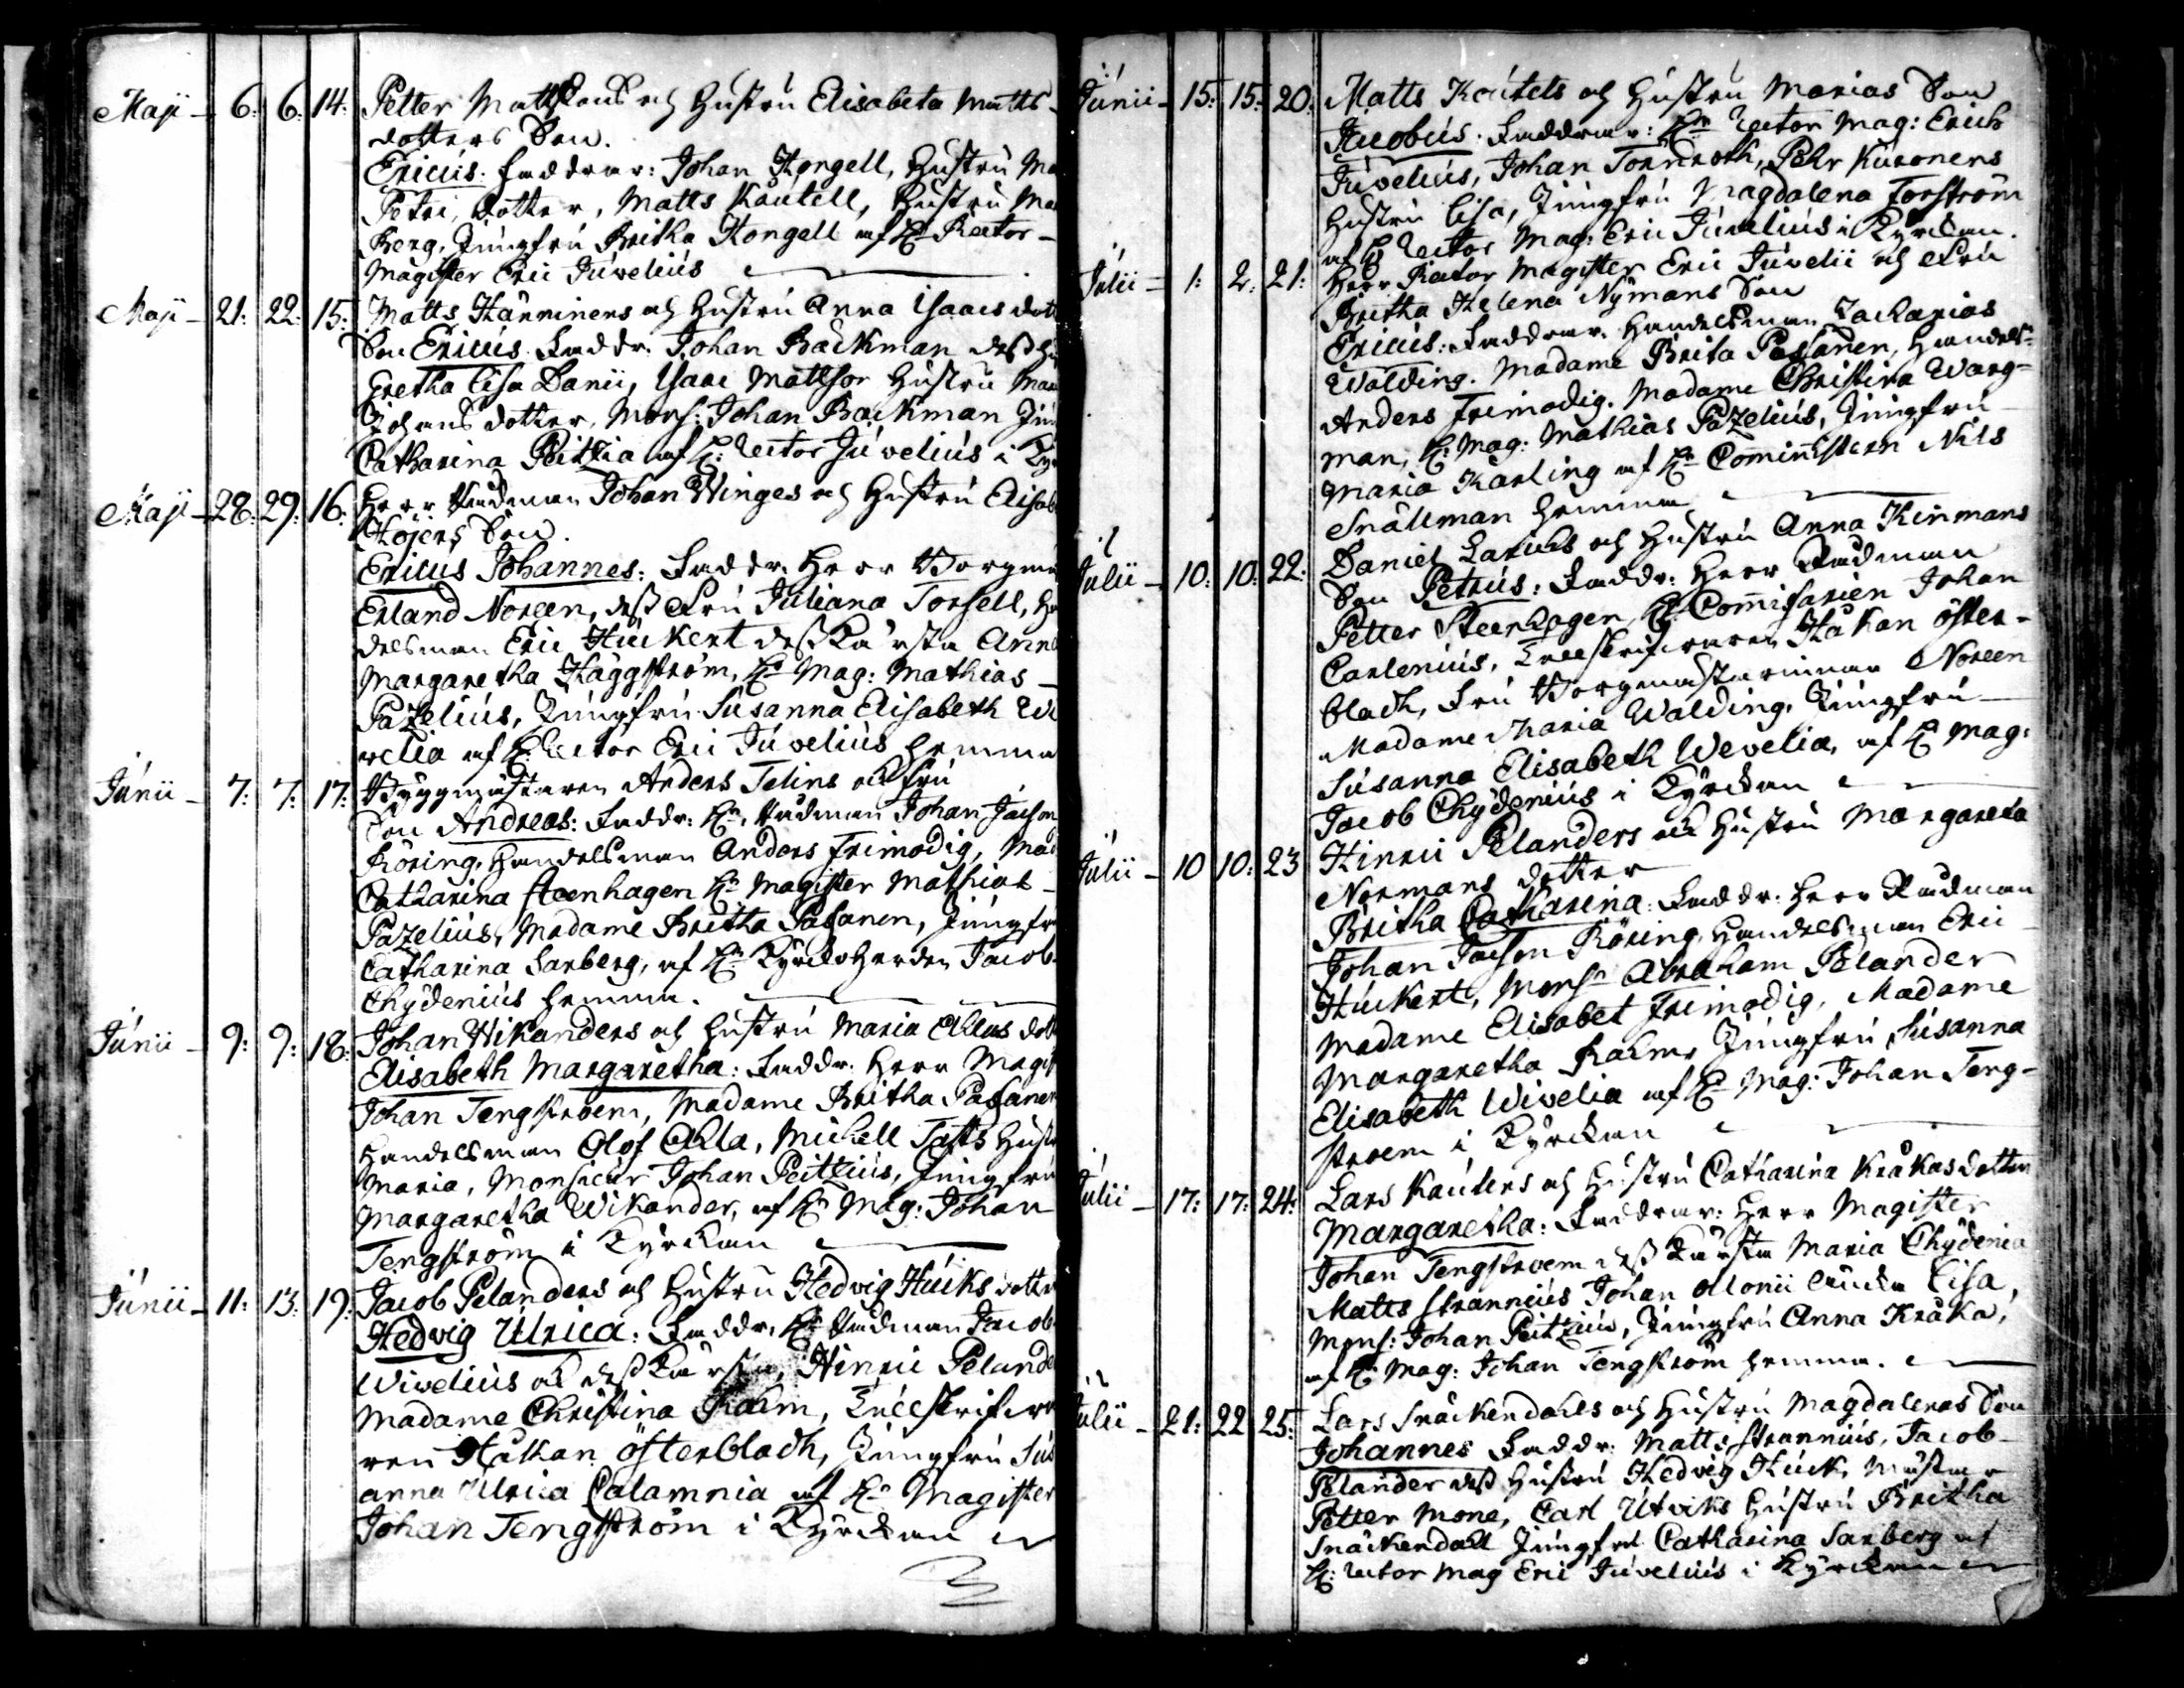 Maji - 6: 6: 14: Petter Mattssons och Hustru Elisabeta Matts-
dotters Son.
Ericus: Faddrar: Johan Kongell, Hustru Ma
Petri, dotter, Matts Kautell, Hustru Ma
Berg, Jungfru Britha Kongell af Hr Rector
Magister Eric Juvelius
Maji - 21: 22: 15: Matts Hänninens och Hustru Anna Isaacs dott
Son Ericus Faddr: Johan Backman dess Hu
Gretha Lisa Danii, Isaac Mattsson Hustru Ma
Johans dotter, Mons: Johan Backman Jun
Catharina Peitzia af H: Rector Juvelius i Kyr
Maji - 28: 29: 16: Herr Rådman Johan Winges och Hustru Elisab
Höjers Son.
Ericus Johannes: Faddr: Herr Borgmä
Erland Noreen, dess Fru Juliana Forsell, Ha
delsman Eric Huckert dess Kärsta Anna
Margaretha Häggström, Hr Mag: Mathias
Pazelius, Jungfru Susanna Elisabeth Wi
velia af H: Rector Eric Juvelius hemma
Junii - 7: 7: 17: Byggmästaren Anders Telins och fru
Son Andreas: Faddr: Hr Rådman Johan Jacson
Röring, Handelsman Anders Frimodig, Mad
Catharina Steenhagen Hr Magister Mathias
Pazelius, Madame Britha Passanen, Jungfru
Catharina Sarberg, af Hr Kyrckoherden Jacob
Chydenius hemma.
Junii - 9: 9: 18: Johan Wikanders och Hustru Maria Ahlas dott
Elisabeth Margaretha: Faddr: Herr Magist
Johan Tengstroem, Madame Britha Passanen
Handelsman Olof Ahla, Michell Tasts Hust
Maria, Monsieur Johan Peitzius, Jungfru
Margaretha Wikander, af Hr Mag: Johan
Tengström i Kyrckan
Junii - 11: 13: 19: Jacob Pelanders och Hustru Hedvig Hucks dotter
Hedvig Ulrica: Faddr: Hr Rådman Jacob
Wivelius och dess Kärsta, Hinric Pelande
Madame Christina Kalm, Tullskrifwa
ren Håkan Österbladh, Jungfru Sus
anna Ulrica Calamnia af Hr Magister
Johan Tengström i Kyrckan
Junii - 15: 15: 20: Matts Kautels och Hustru Marias Son
Jacobus. Faddrar: Hr Rector Mag: Erich
Juvelius, Johan Tornroth, Pehr Kuronens
Hustru Lisa, Jungfru Magdalena Forström
af H Rector Mag: Eric Juvelius i Kyrckan.
Julii - 1: 2: 21: Herr Rector Magister Eric Juvelii och Fru
Britha Helena Nymans Son
Ericus: Faddrar: Handelsman Zacharias
Walding. Madame Brita Passanen, Handels-
Anders Frimodig. Madame Christina Warg-
man, H: Mag: Mathias Pazelius, Jungfru
Maria Karling af Hr Comministern Nils
Snällman hemma
Julii - 10: 10: 22: Daniel Larichs och Hustru Anna Kinmans
Son Petrus: Faddr: Herr Rådman
Petter Steenhagen, Hr Commissarien Johan
Carlenius, Tullskrifwaren Håkan Öster-
bladh, Fru Borgmästarinnan Noreen
Madame Maria Walding, Jungfru
Susanna Elisabeth Wevelia, af Hr Mag:
Jacob Chydenius i Kyrckan
Julii - 10 10: 23 Hinric Pelanders och Hustru Margareta
Normans dotter
Britha Catharina: Faddr: Herr Rådman
Johan Jacson Röring, Handelsman Eric
Huckert, Monsr Abraham Pelander
Madame Elisabet Frimodig, Madame
Margaretha Kalm, Jungfru Susanna
Elisabeth Wivelia af Hr Mag: Johan Teng-
stroem i Kyrckan
Julii - 17: 17: 24: Lars Kauters och Hustru Catharina Kråkas dotter
Margaretha: Faddrar: Herr Magister
Johan Tengstroem dess Kärsta Maria Chydenia
Matts Strannius Johan Monii Lisa,
Mons: Johan Peitzius, Jungfru Anna Kråka,
af H: Mag: Johan Tengström hemma.
Julii - 21: 22 25: Lars Snäckendahls och Hustru Magdalenas Son
Johannes Faddr: Matts Strannius, Jacob
Pelander dess Hustru Hedvig Huck, Mäster
Petter Mone, Carl Utviks Hustru Britha
Snäckendahl Jungfru Catharina Sarberg af
H: Rector Mag Eric Juvelius i Kyrckan